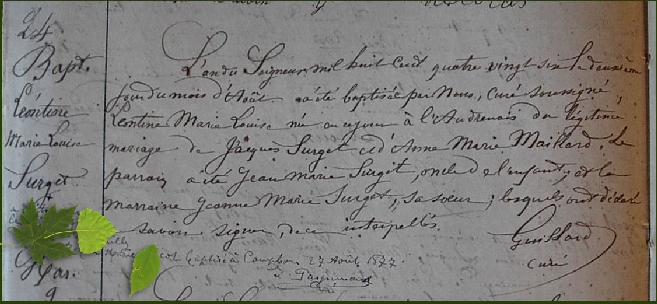 24
Bapt.
Léontine
Marie Louise
Surget
L'an du Seigneur mil huit cent quatre vingt six le deuxième
jour du mois d'Août a été baptisée par Nous, curé soussigné,
Léontine Marie Louise née en ce jour à l'Audrenais du légitime
mariage de Jacques Surget et d'Anne Marie Maillard. Le
parrain a été Jean Marie Surget, oncle de l'enfant, et la
marraine Jeanne Marie Surget, sa sœur; lesquels ont déclaré
savoir signer, de ce interpellés.
Guillard
curé
27 Août 1877
Mar.
9